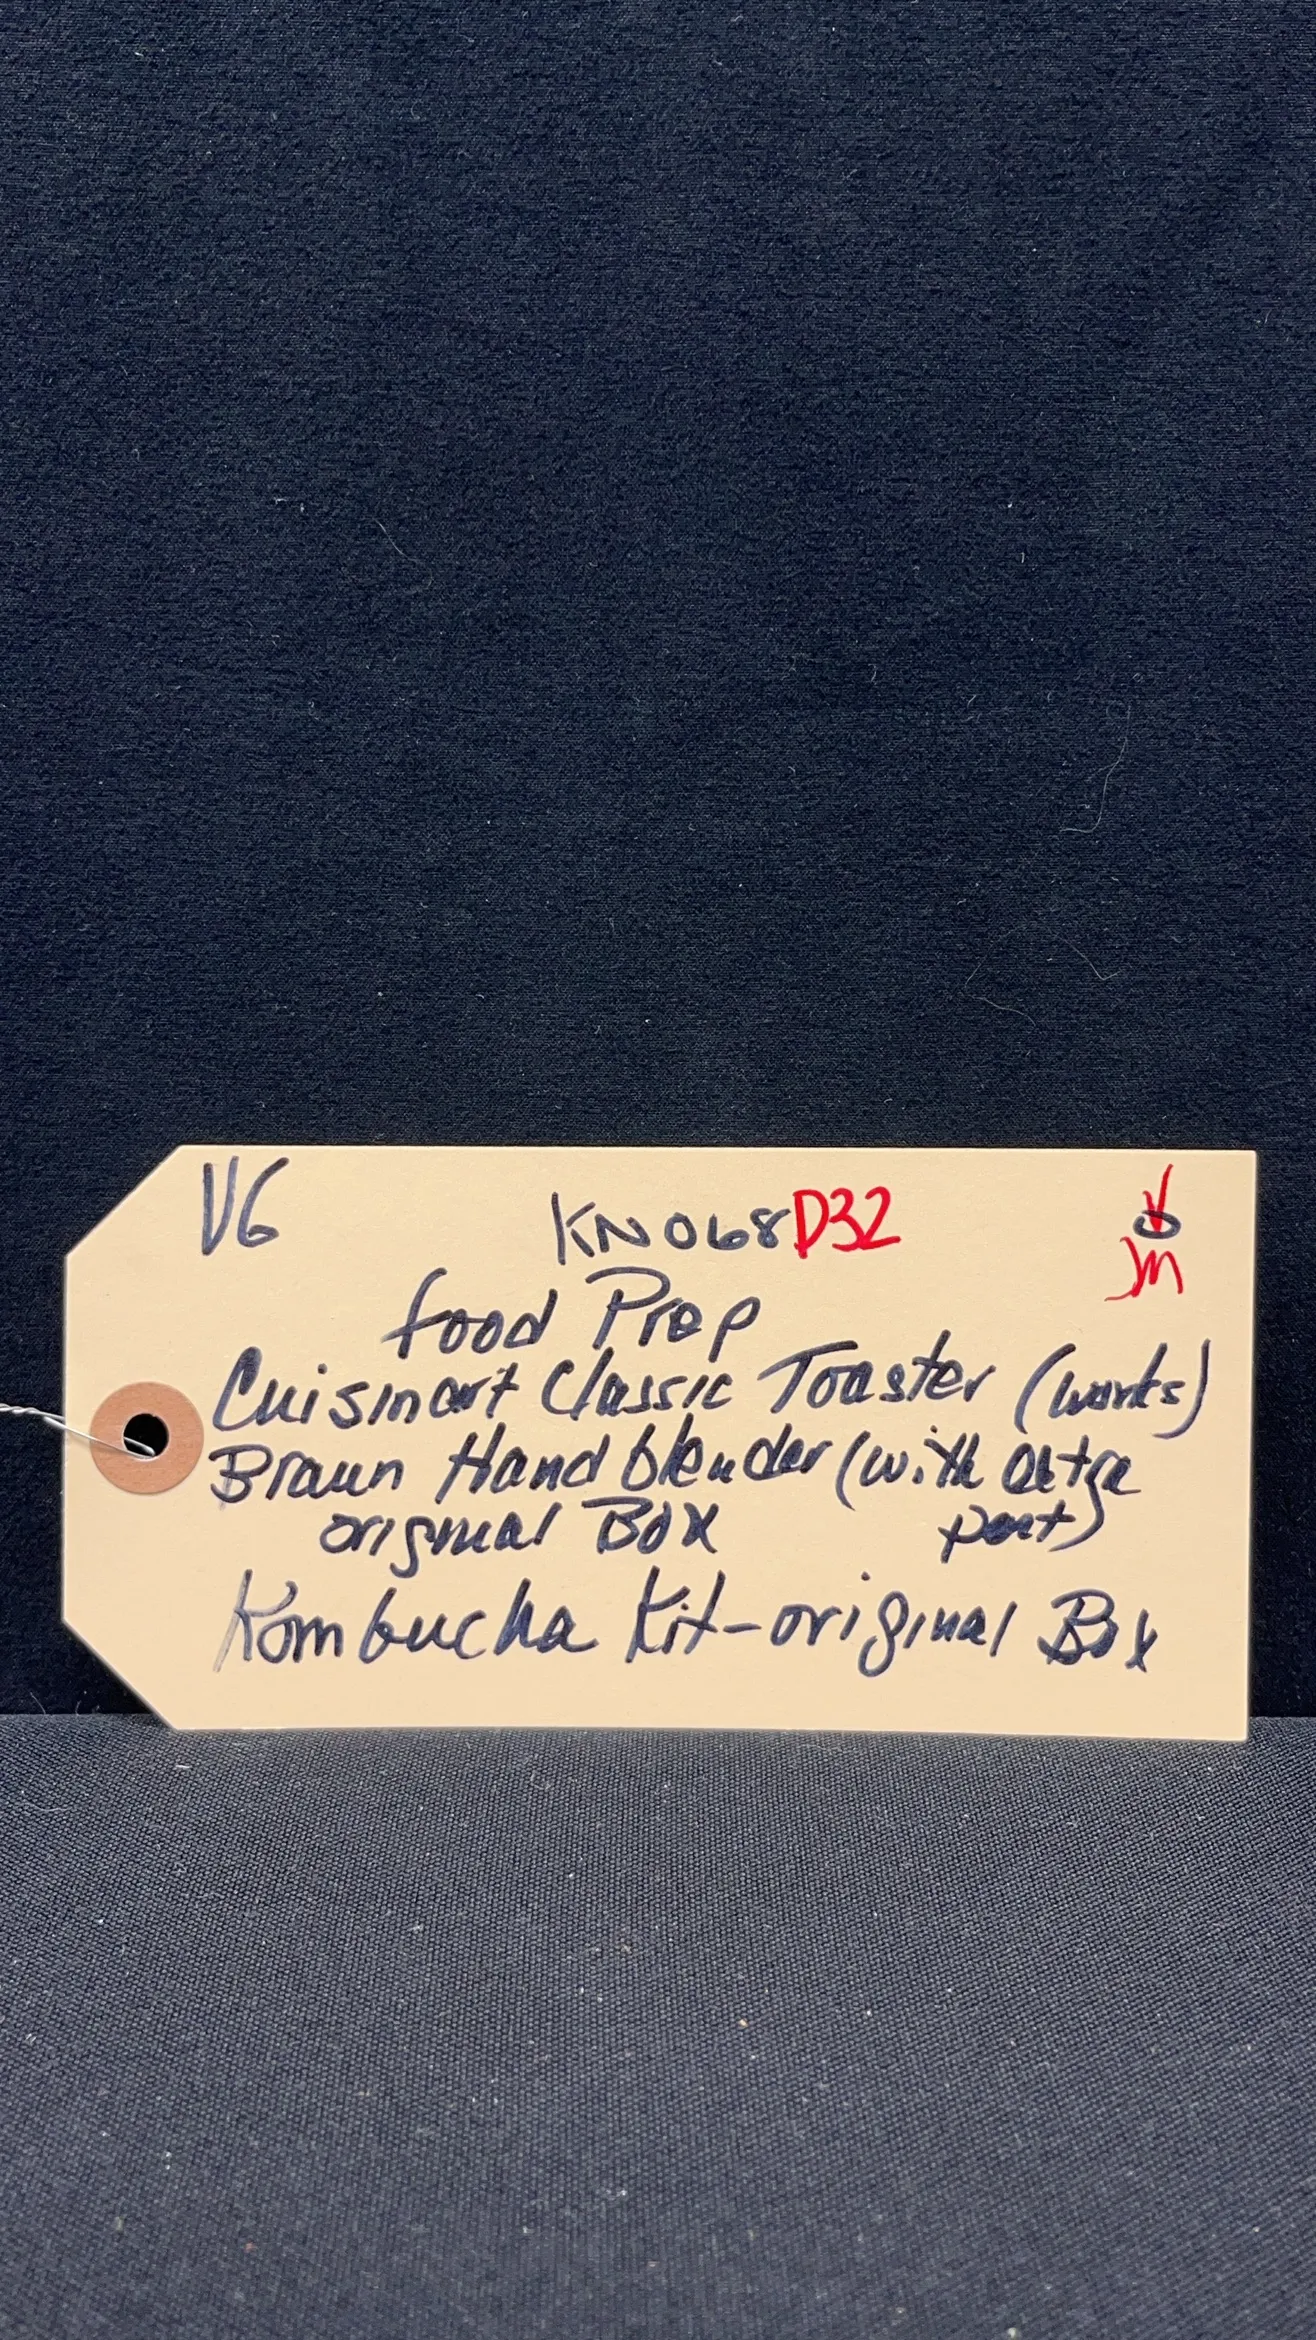 VG KN068D32
Food Prep
Cuisinart Classic Toaster (works)
Braun Hand blender (with extra part)
original Box
Kombucha Kit-original Box